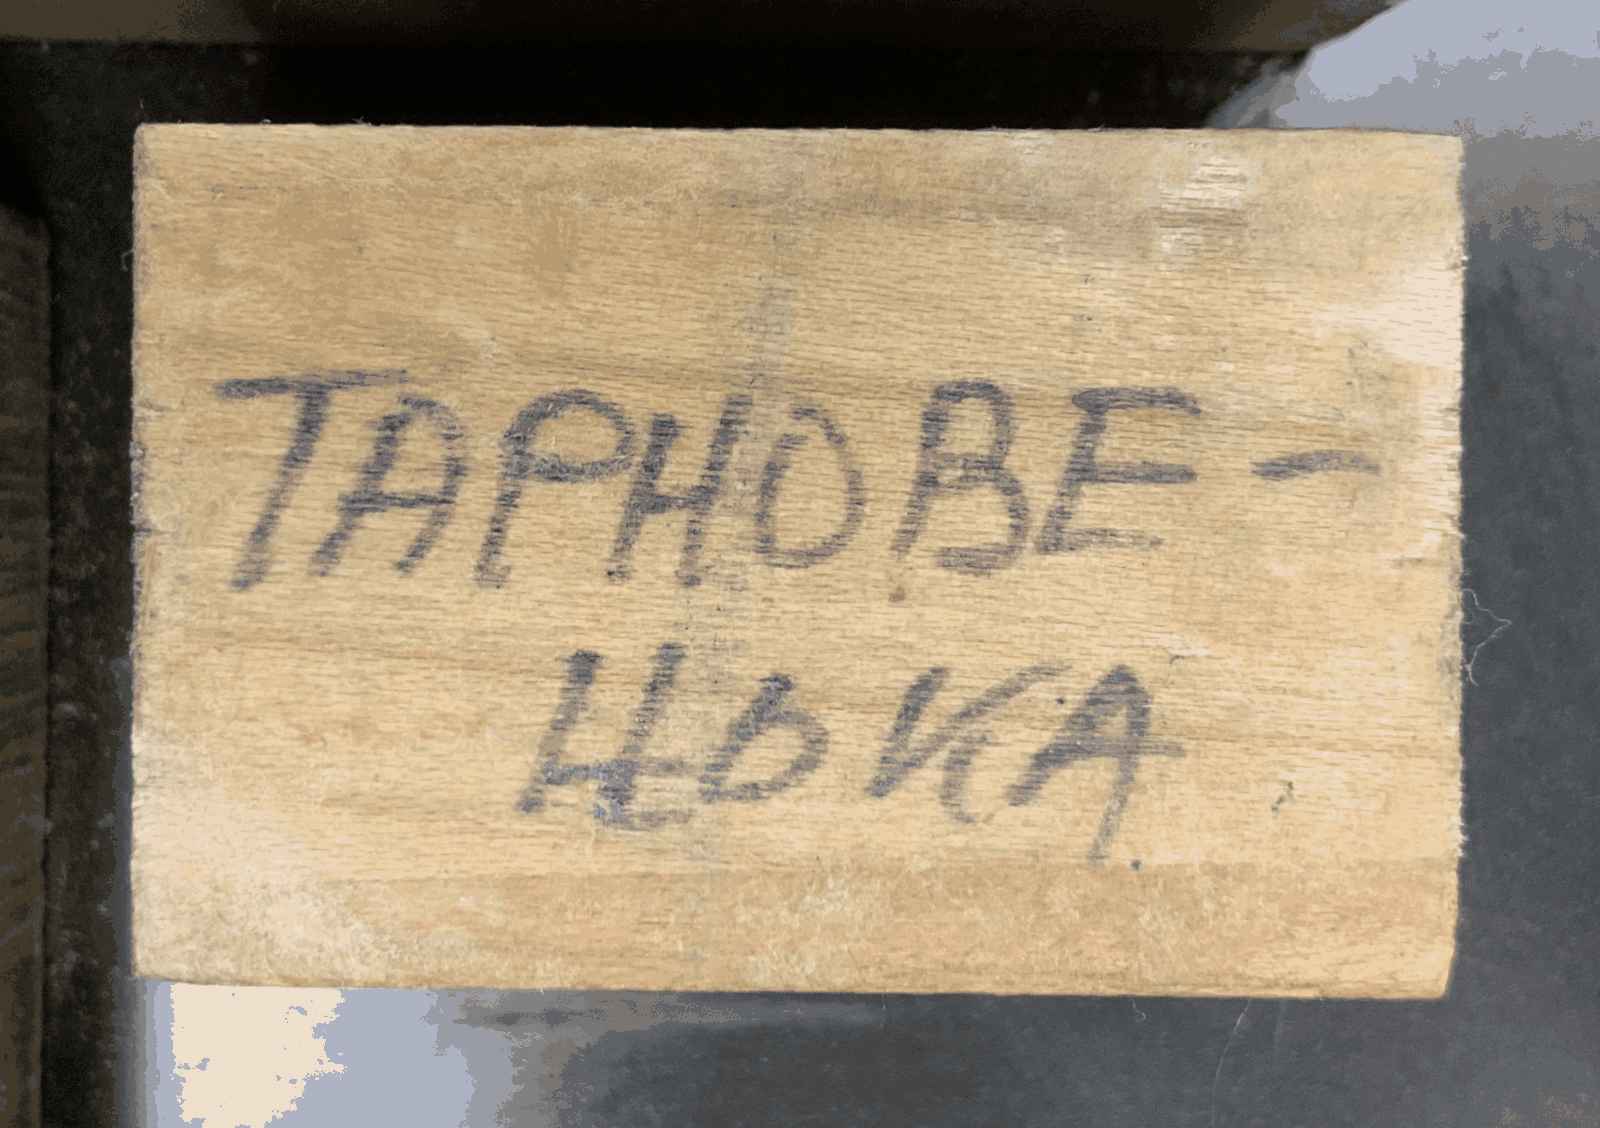 ТАРНОВЕ-
ЦЬКА